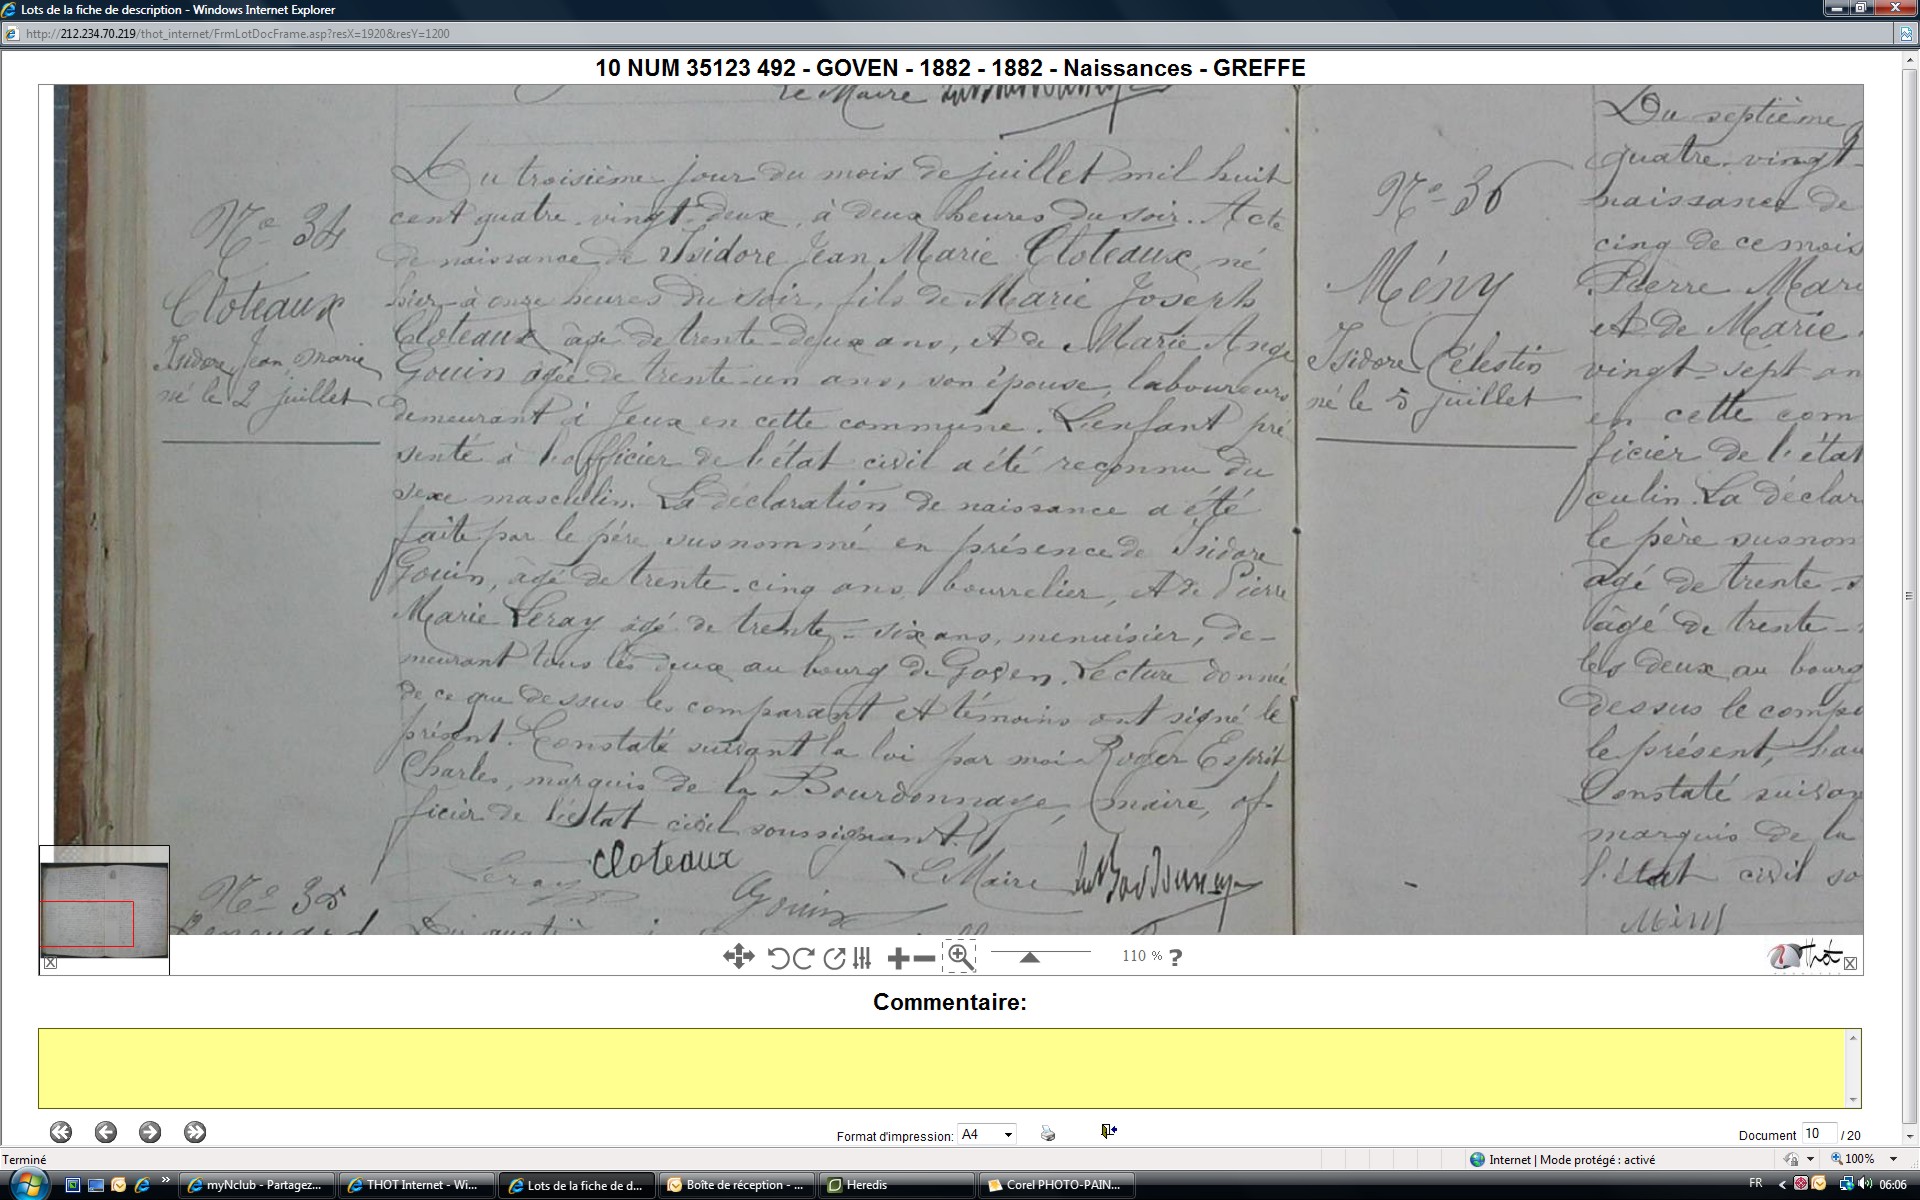 Lots de la fiche de description - Windows Internet Explorer
http://212.234.70.219/thot_internet/FrmLotDocFrame.asp?resX=1920&resY=1200
10 NUM 35123 492 - GOVEN - 1882 - 1882 - Naissances - GREFFE
le Maire
N° 34
Cloteaux
Isidore Jean marie
né le 2 juillet
Du troisième jour du mois de juillet mil huit
cent quatre-vingt-deux, à deux heures du soir. Acte
de naissance de Isidore Jean Marie Cloteaux, né
hier à onze heures du soir, fils de Marie Joseph
Cloteaux âgé de trente-deux ans, et de Marie Ange
Gouin âgée de trente-un ans, son épouse, laboureurs
demeurant à Jeux en cette commune. L'enfant pré
senté à l'officier de l'état civil a été reconnu du
sexe masculin. La déclaration de naissance a été
faite par le père susnommé en présence de Isidore
Gouin, âgé de trente-cinq ans, bourrelier, et de Pierre
Marie Leray âgé de trente-six ans, menuisier, de-
meurant tous les deux au bourg de Goven. Lecture donnée
de ce que dessus les comparant et témoins ont signé le
présent. Constaté suivant la loi par moi Roger Esprit
Charles, marquis de la Bourdonnaye, maire, of-
ficier de l'état civil soussignant.
Leray Cloteaux Gouin Le Maire
N° 35
N° 36
Mény
Isidore Célestin
né le 5 juillet
Du septième
quatre-vingt-
naissance de
cinq de ce mois
Pierre Mari
et de Marie
vingt-sept an
en cette com
ficier de l'état
culin. La déclar
le père susnom
âgé de trente-s
âgé de trente-
les deux au bourg
dessus le compa
le présent,
Constaté suivan
marquis de la
l'état civil so
110 % ?
Thot
Commentaire:
Format d'impression: A4
Document 10 / 20
Terminé
Internet | Mode protégé : activé
100%
myNclub - Partagez...
THOT Internet - Wi...
Lots de la fiche de d...
Boîte de réception - ...
Heredis
Corel PHOTO-PAIN...
FR
06:06